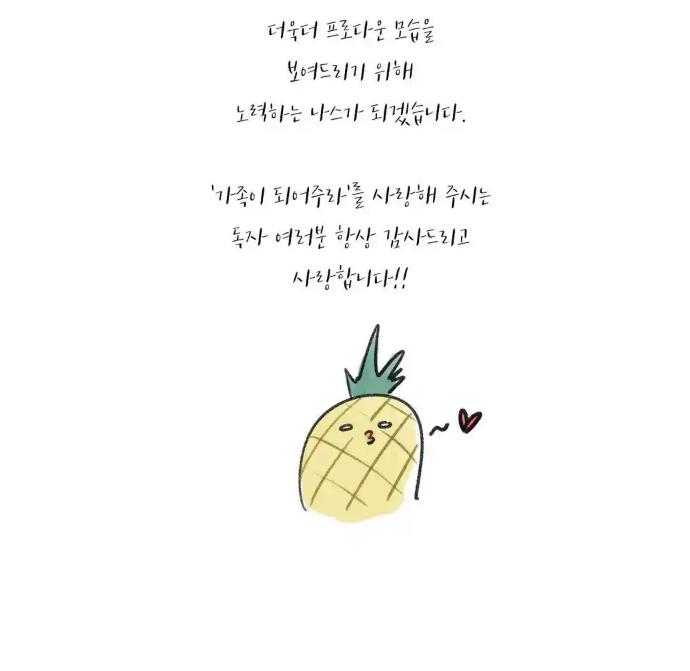 더욱더 프로다운 모습을
보여드리기 위해
노력하는 나스가 되겠습니다.
'가족이 되어주라'를 사랑해 주시는
독자 여러분 항상 감사드리고
사랑합니다!!